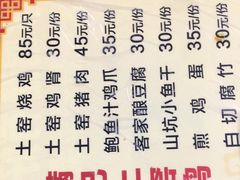 土窑烧鸡 85元/只
土窑鸡肾 30元/份
土窑猪肉 45元/份
鲍鱼汁鸡爪 35元/份
客家酿豆腐 30元/份
山坑小鱼干 35元/份
煎鸡蛋 15元/份
白切腐竹 30元/份